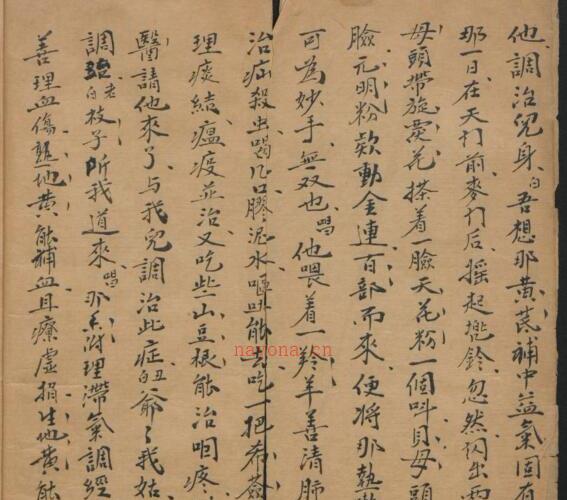 他調治兒身白吾想那黃芪補中益氣固有
那一日在天門前麥門后摇起㧡鈴忽然闪出两
母頭帶旋覆花搽着一臉天花粉一個叫貝母頭
臉元明粉欵動金連百部而來便將那熟
可為妙手無双也唱他喂着一羚羊善清肺
治疝殺虫喝几口膠泥水嘔吐能去吃一把希薟
理痰結瘟疫並治又吃些山豆根能治咽疼
醫請他來了与我兒調治此症丑白爺々我姑
調治老白枝子听我道來唱那香附理滯氣調經
善理血傷熟地黃能補血且療虛損生地黃能
nayona.cn